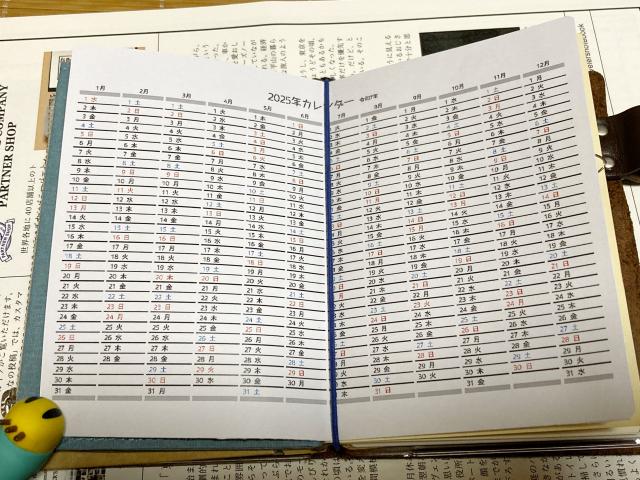 2025年カレンダー 令和7年
1月 2月 3月 4月 5月 6月 7月 8月 9月 10月 11月 12月
1 水 1 土 1 土 1 火 1 木 1 日 火 1 金 1 月 1 水 1 土 1 月
2 木 2 日 2 日 2 水 2 金 2 月 水 2 土 2 火 2 木 2 日 2 火
3 金 3 月 3 月 3 木 3 土 3 火 木 3 日 3 水 3 金 3 月 3 水
4 土 4 火 4 火 4 金 4 日 4 水 金 4 月 4 木 4 土 4 火 4 木
5 日 5 水 5 水 5 土 5 月 5 木 土 5 火 5 金 5 日 5 水 5 金
6 月 6 木 6 木 6 日 6 火 6 金 日 6 水 6 土 6 月 6 木 6 土
7 火 7 金 7 金 7 月 7 水 7 土 月 7 木 7 日 7 火 7 金 7 日
8 水 8 土 8 土 8 火 8 木 8 日 火 8 金 8 月 8 水 8 土 8 月
9 木 9 日 9 日 9 水 9 金 9 月 水 9 土 9 火 9 木 9 日 9 火
10 金 10 月 10 月 10 木 10 土 10 火 木 10 日 10 水 10 金 10 月 10 水
11 土 11 火 11 火 11 金 11 日 11 水 金 11 月 11 木 11 土 11 火 11 木
12 日 12 水 12 水 12 土 12 月 12 木 土 12 火 12 金 12 日 12 水 12 金
13 月 13 木 13 木 13 日 13 火 13 金 日 13 水 13 土 13 月 13 木 13 土
14 火 14 金 14 金 14 月 14 水 14 土 月 14 木 14 日 14 火 14 金 14 日
15 水 15 土 15 土 15 火 15 木 15 日 火 15 金 15 月 15 水 15 土 15 月
16 木 16 日 16 日 16 水 16 金 16 月 水 16 土 16 火 16 木 16 日 16 火
17 金 17 月 17 月 17 木 17 土 17 火 木 17 日 17 水 17 金 17 月 17 水
18 土 18 火 18 火 18 金 18 日 18 水 金 18 月 18 木 18 土 18 火 18 木
19 日 19 水 19 水 19 土 19 月 19 木 土 19 火 19 金 19 日 19 水 19 金
20 月 20 木 20 木 20 日 20 火 20 金 日 20 水 20 土 20 月 20 木 20 土
21 火 21 金 21 金 21 月 21 水 21 土 月 21 木 21 日 21 火 21 金 21 日
22 水 22 土 22 土 22 火 22 木 22 日 火 22 金 22 月 22 水 22 土 22 月
23 木 23 日 23 日 23 水 23 金 23 月 水 23 土 23 火 23 木 23 日 23 火
24 金 24 月 24 月 24 木 24 土 24 火 木 24 日 24 水 24 金 24 月 24 水
25 土 25 火 25 火 25 金 25 日 25 水 金 25 月 25 木 25 土 25 火 25 木
26 日 26 水 26 水 26 土 26 月 26 木 土 26 火 26 金 26 日 26 水 26 金
27 月 27 木 27 木 27 日 27 火 27 金 日 27 水 27 土 27 月 27 木 27 土
28 火 28 金 28 金 28 月 28 水 28 土 月 28 木 28 日 28 火 28 金 28 日
29 水 29 土 29 火 29 木 29 日 火 29 金 29 月 29 水 29 土 29 月
30 木 30 日 30 水 30 金 30 月 水 30 土 30 火 30 木 30 日 30 火
31 金 31 月 31 土 木 31 日 31 金 31 水
COMPANY
PARTNER SHOP
世界各地に40店舗以上のト